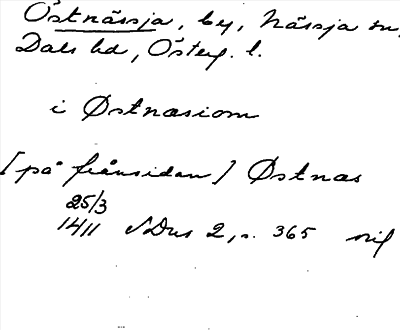 Östnässja, by, Nässja sn,
Dals hd, Österg. l.
i Østnæsiom
[på frånsidan] Østnæs
25/3
1411 SDns 2, s. 365 nif